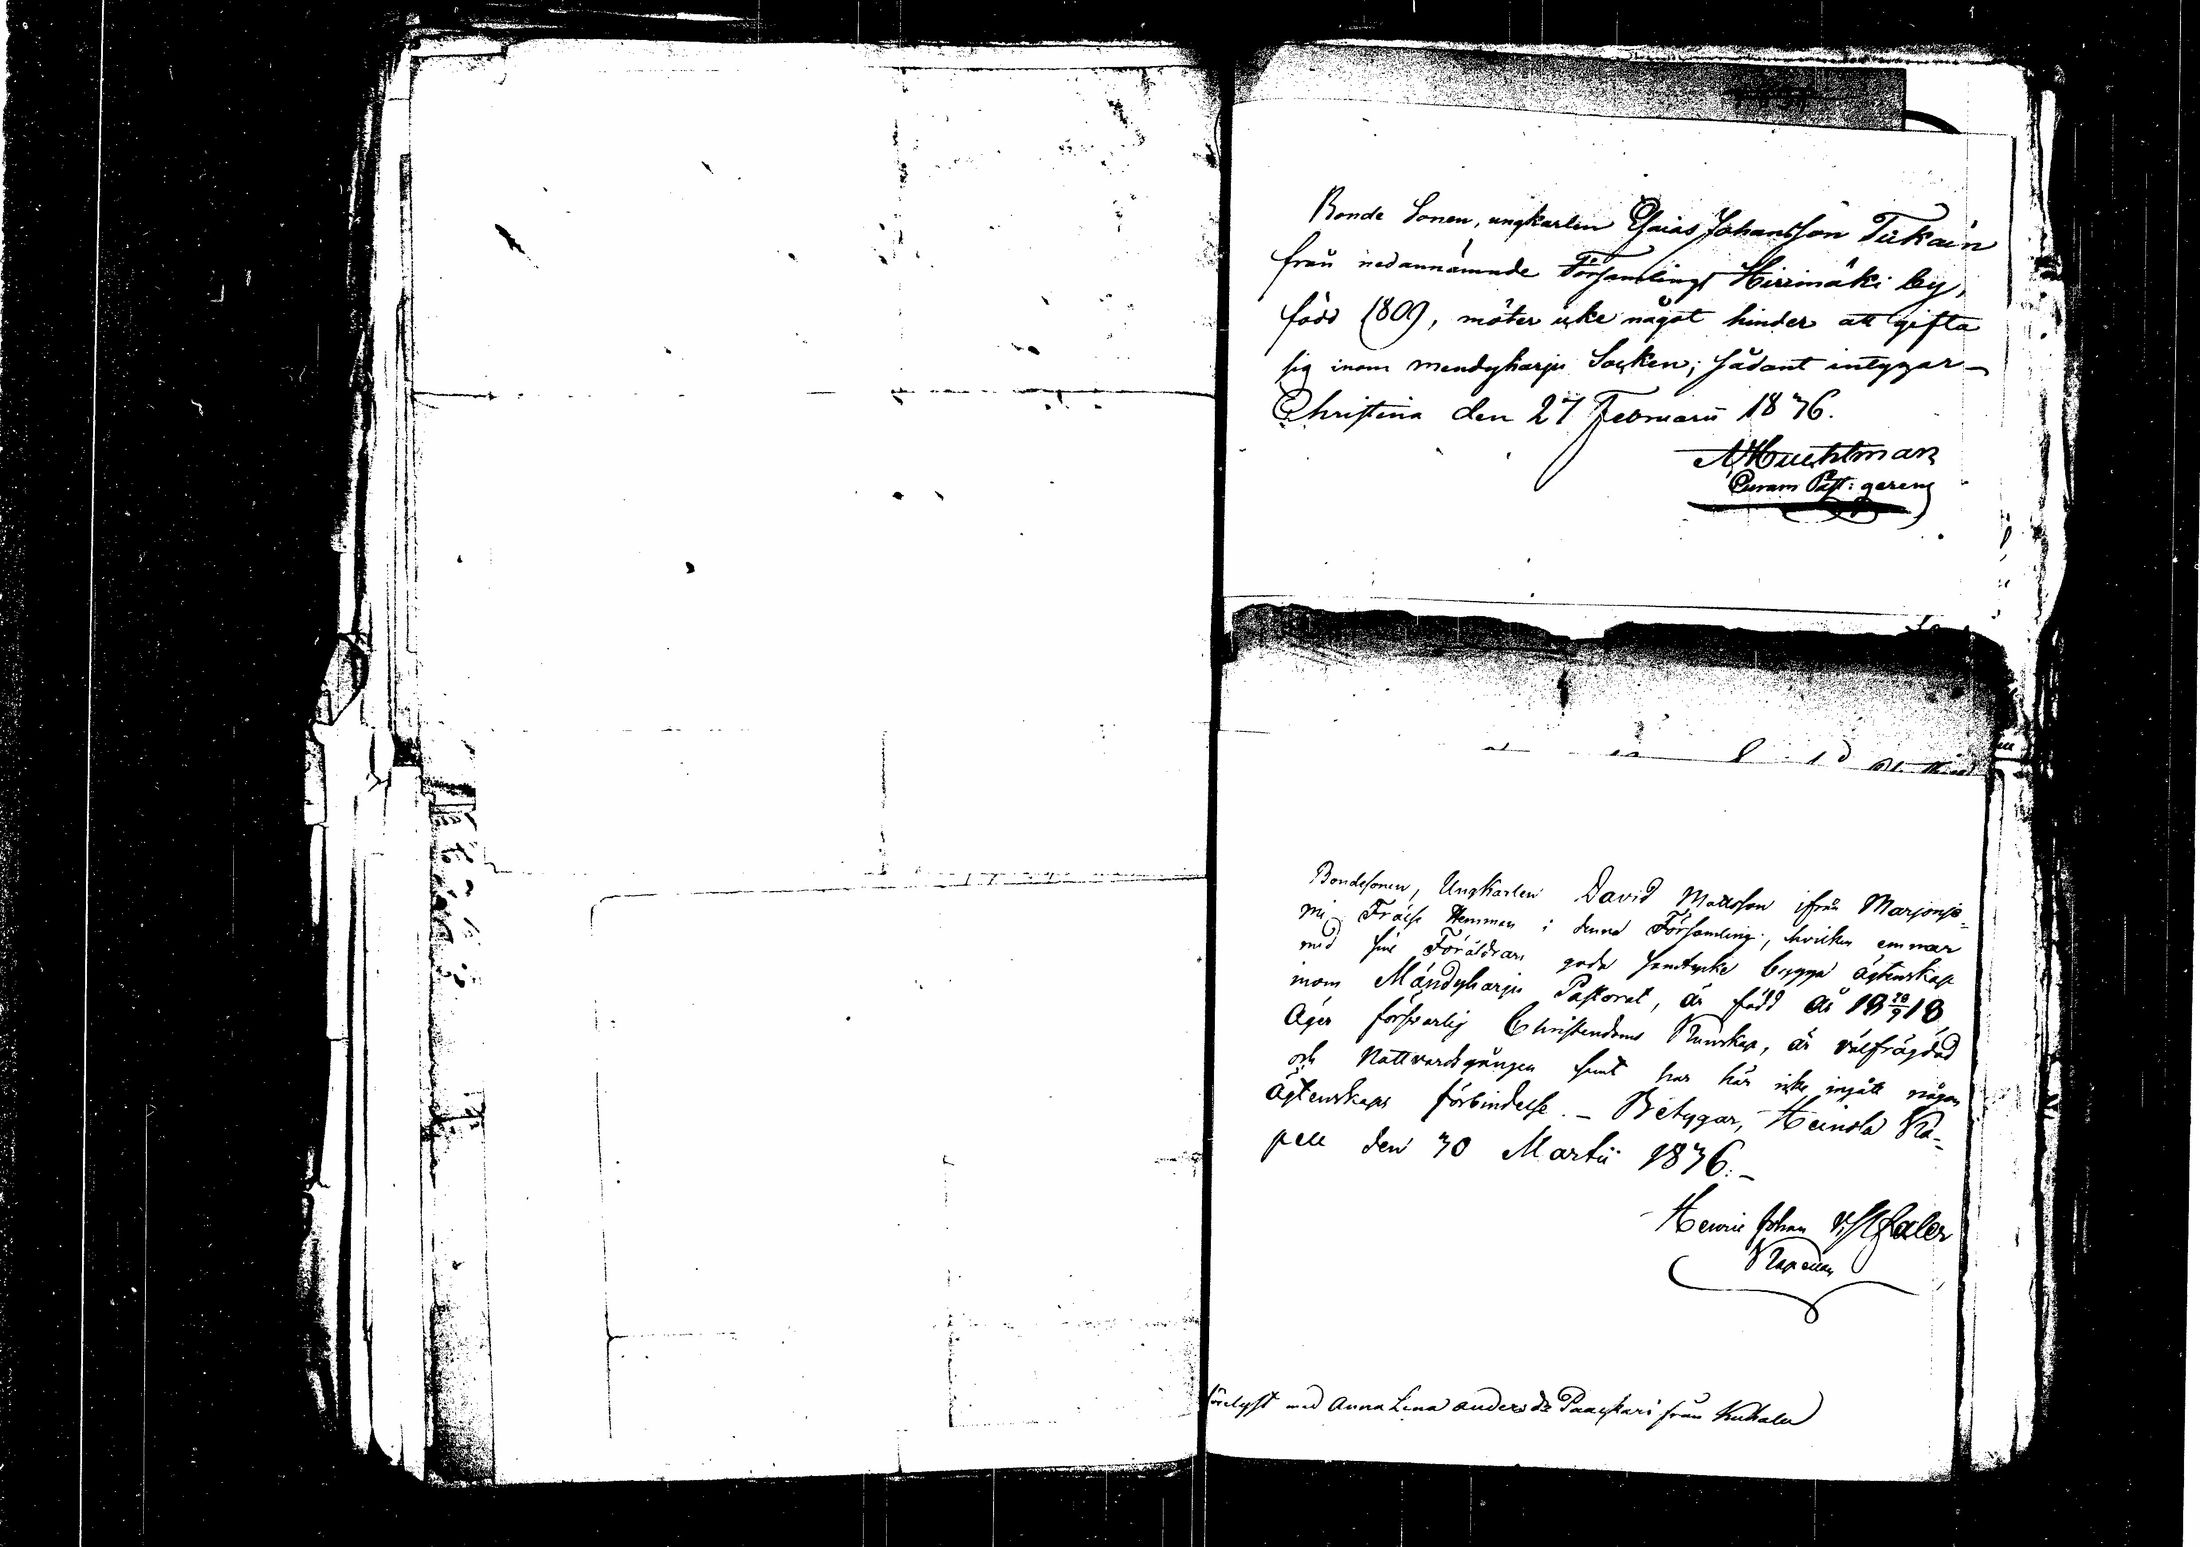 Bonde Sonen, ungkarlen Esaias Johansson Tiikain
från nedannämnde Församlings Hirimäki by,
född 1809, möter icke något hinder att gifta
sig inom Mendyharju Socken; sådant intygar –
Christina den 27 Februarii 1836.
Curam Past: gerens
Bondesonen, Ungkarlen David Mattsson ifrån Marjonie-
mi Frälse Hemman i denna Församling, hvilken ernnar
med sine Föräldrars goda samtycke bygga ägtenskap
inom Mändyharju Pastorat, är född år 18 18
äger försvarlig Christendoms Kunskap, är välfrägdad
och Nattvardsgången samt har här icke ingått någon
ägtenskaps förbindelse. – Betygar, Heinola Ka-
pell den 30 Martii 1836. –
Henric Johan
Kapellan
förelyst med Anna Lena Anders dr Paaskari från Kukala